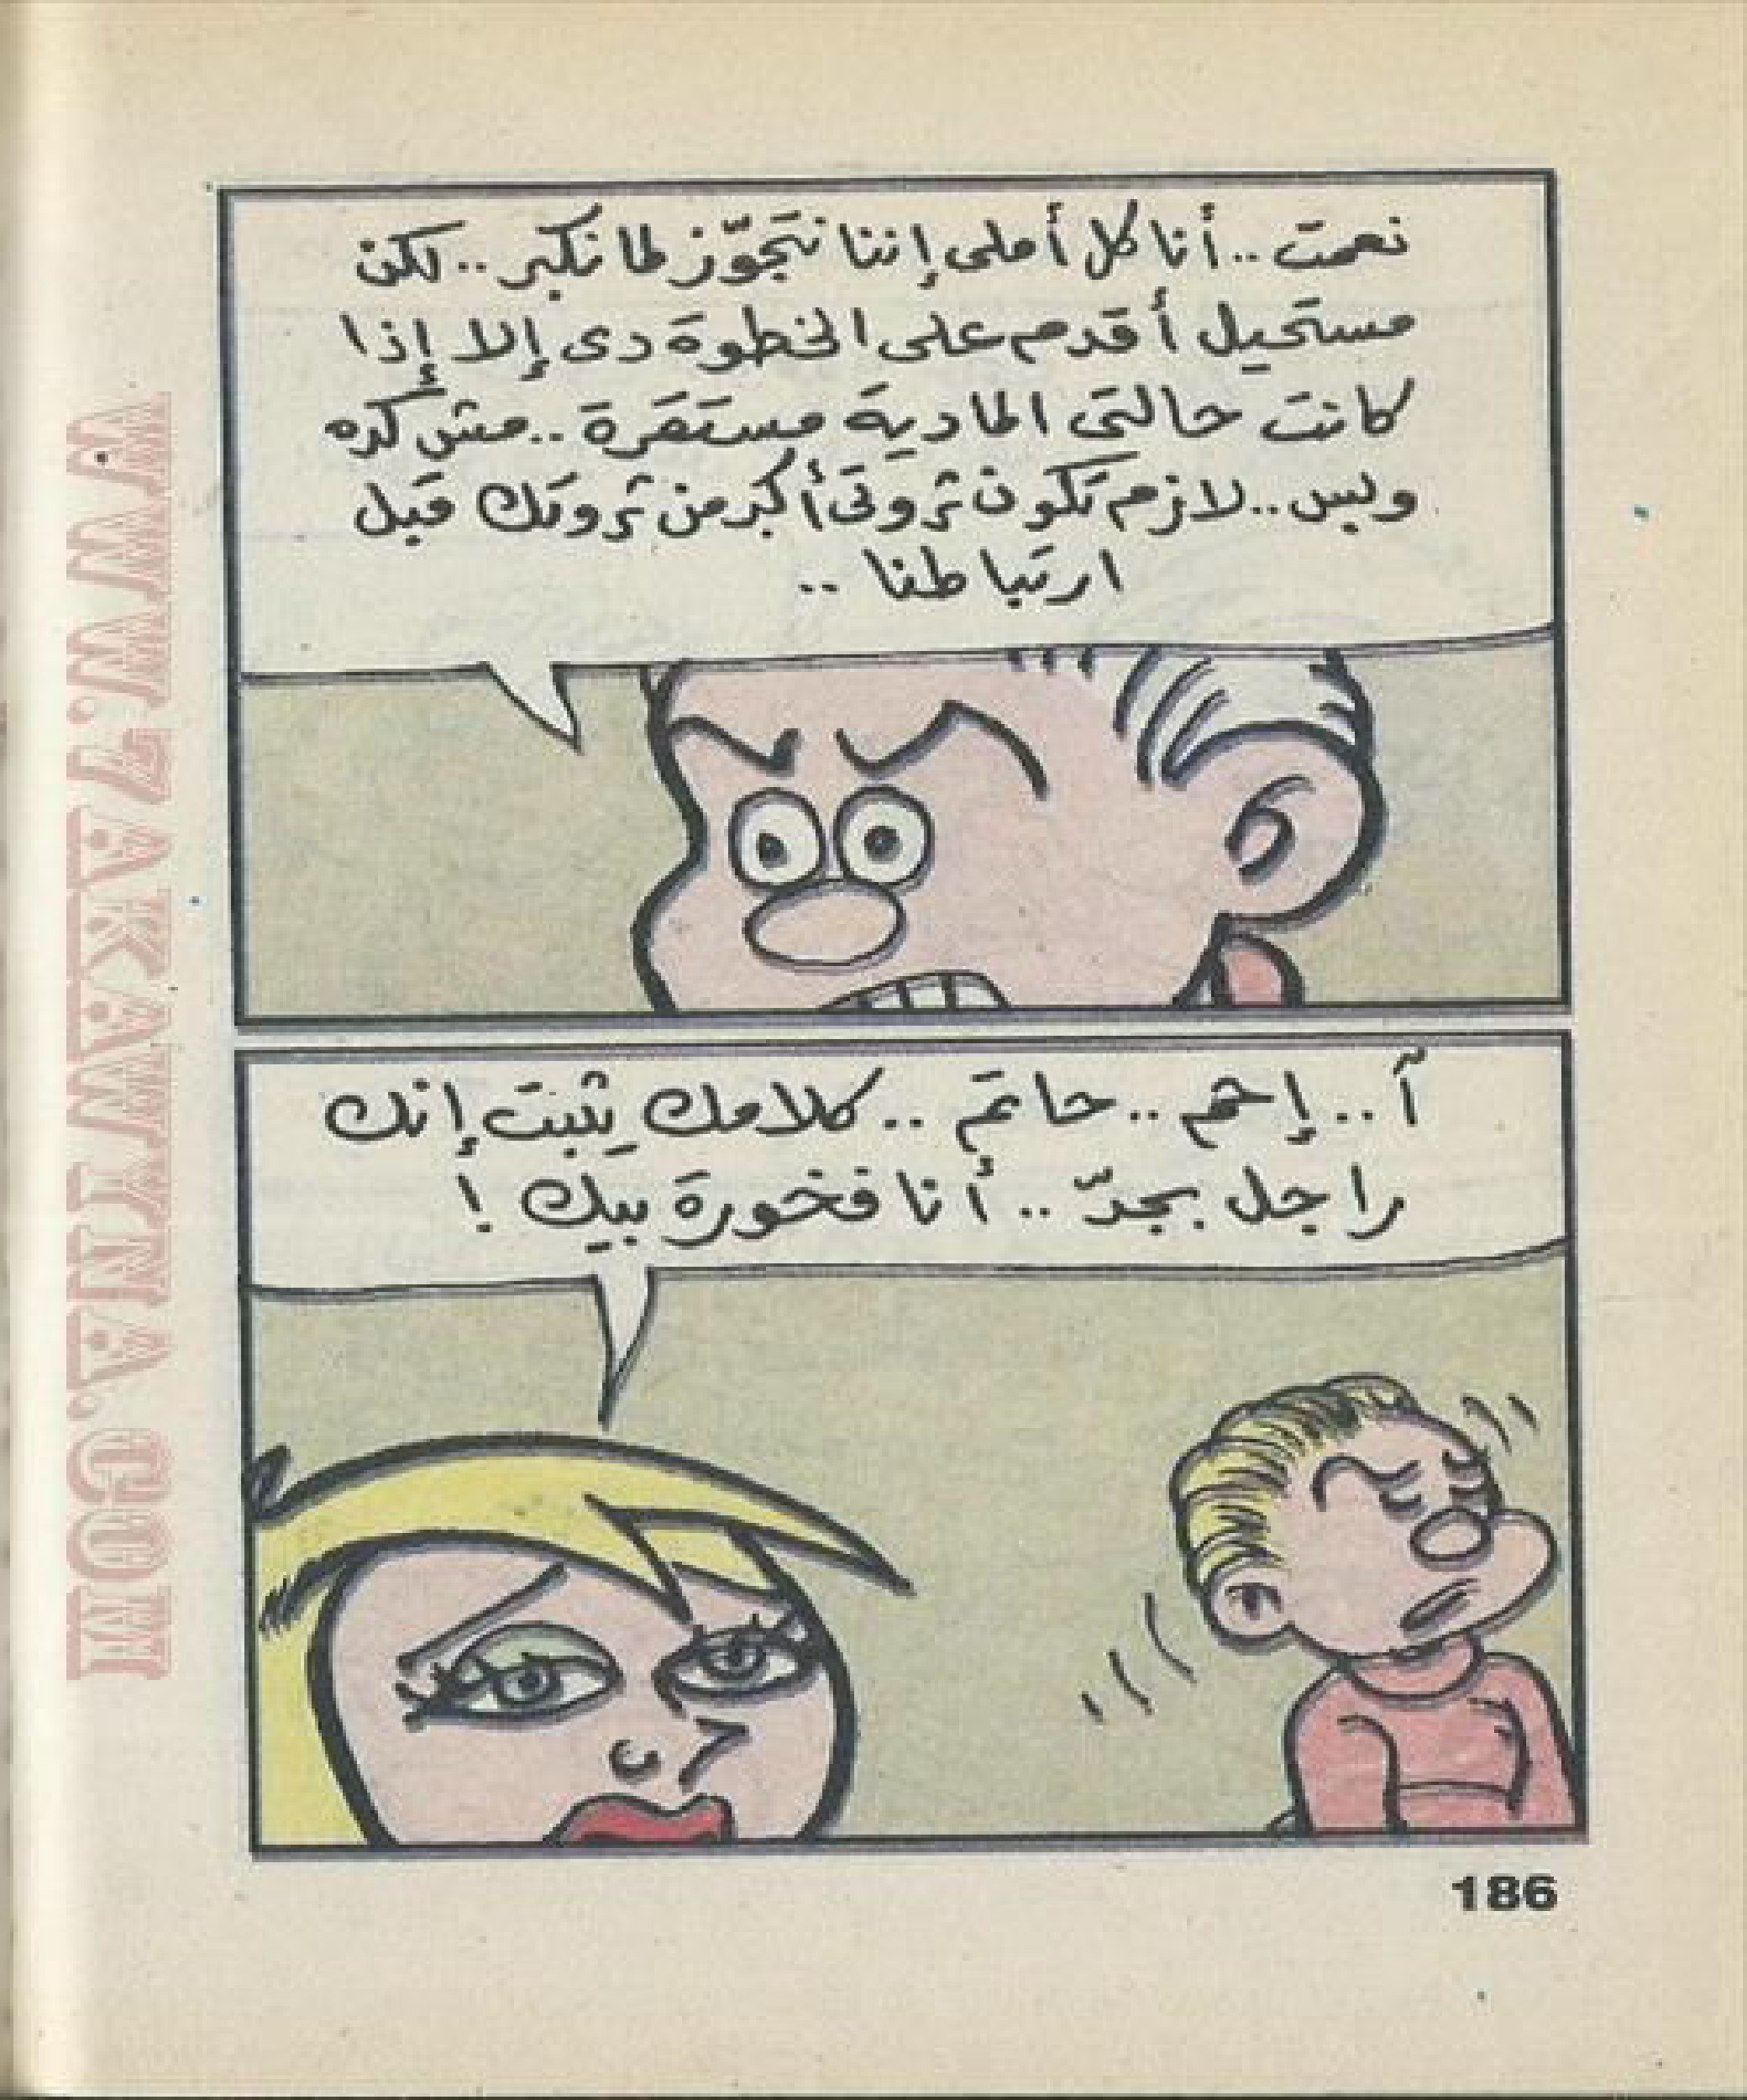 نعمت .. أنا كل أملى إننا نتجوّز لما نكبر .. لكن
مستحيل أقدم على الخطوة دى إلا إذا
كانت حالتى المادية مستقرة .. مش كده
وبس .. لازم تكون ثروتى أكبر من ثروتك قبل
ارتباطنا ..
آ .. إحم .. حاتم .. كلامك يثبت إنك
راجل بجدّ .. أنا فخورة بيك !
186
WWW.7AKAWITNA.COM